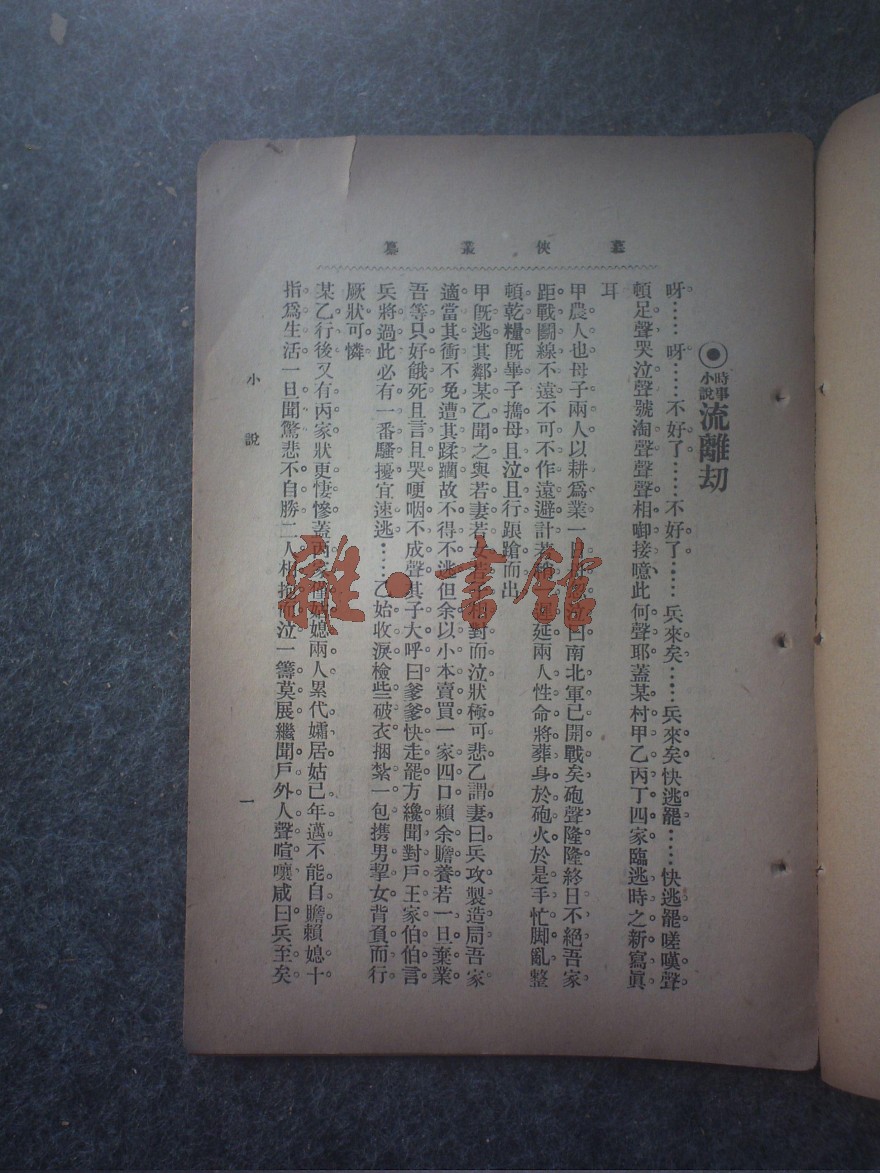 墓俠叢纂
時事小說 流離劫
呀……呀……不好了……不好了……兵來矣……兵來矣快逃罷……快逃罷嗟嘆聲
頓足聲哭泣聲號淘聲聲聲相啣接噫此何聲耶蓋某村甲乙丙丁四家臨逃時之新寫眞
耳
甲農人也母子兩人以耕爲業一日 泣曰南北軍已開戰矣砲聲隆隆終日不絕吾家
距戰鬭線不遠不可不作遠避計若稍 延兩人性命將葬身於砲火於是手忙脚亂整
頓乾糧旣畢子攜母且泣且行踉蹌而出
甲旣逃其鄰某乙聞之與若妻若女若子相對而泣狀極可悲乙謂妻曰兵攻製造局吾家
適當其衝不免遭其蹂躪故不得不逃但余以小本賣買一家四口賴余贍養若一旦棄業
吾等只好餓死且言且哭哽咽不成聲其子大呼曰爹爹快走罷方纔聞對戶王家伯伯言
兵將過此必有一番騷擾宜速逃……乙始收淚檢些破衣捆紮一包携男挈女背負而行
厥狀可憐
某乙行後又有丙家狀更悽慘蓋丙 姑媳兩人累代孀居姑已年邁不能自贍賴媳十
指爲生活一旦聞驚悲不自勝二人相抱而泣一籌莫展繼聞戶外人聲喧嚷咸曰兵至矣
小說
一
雜·書館